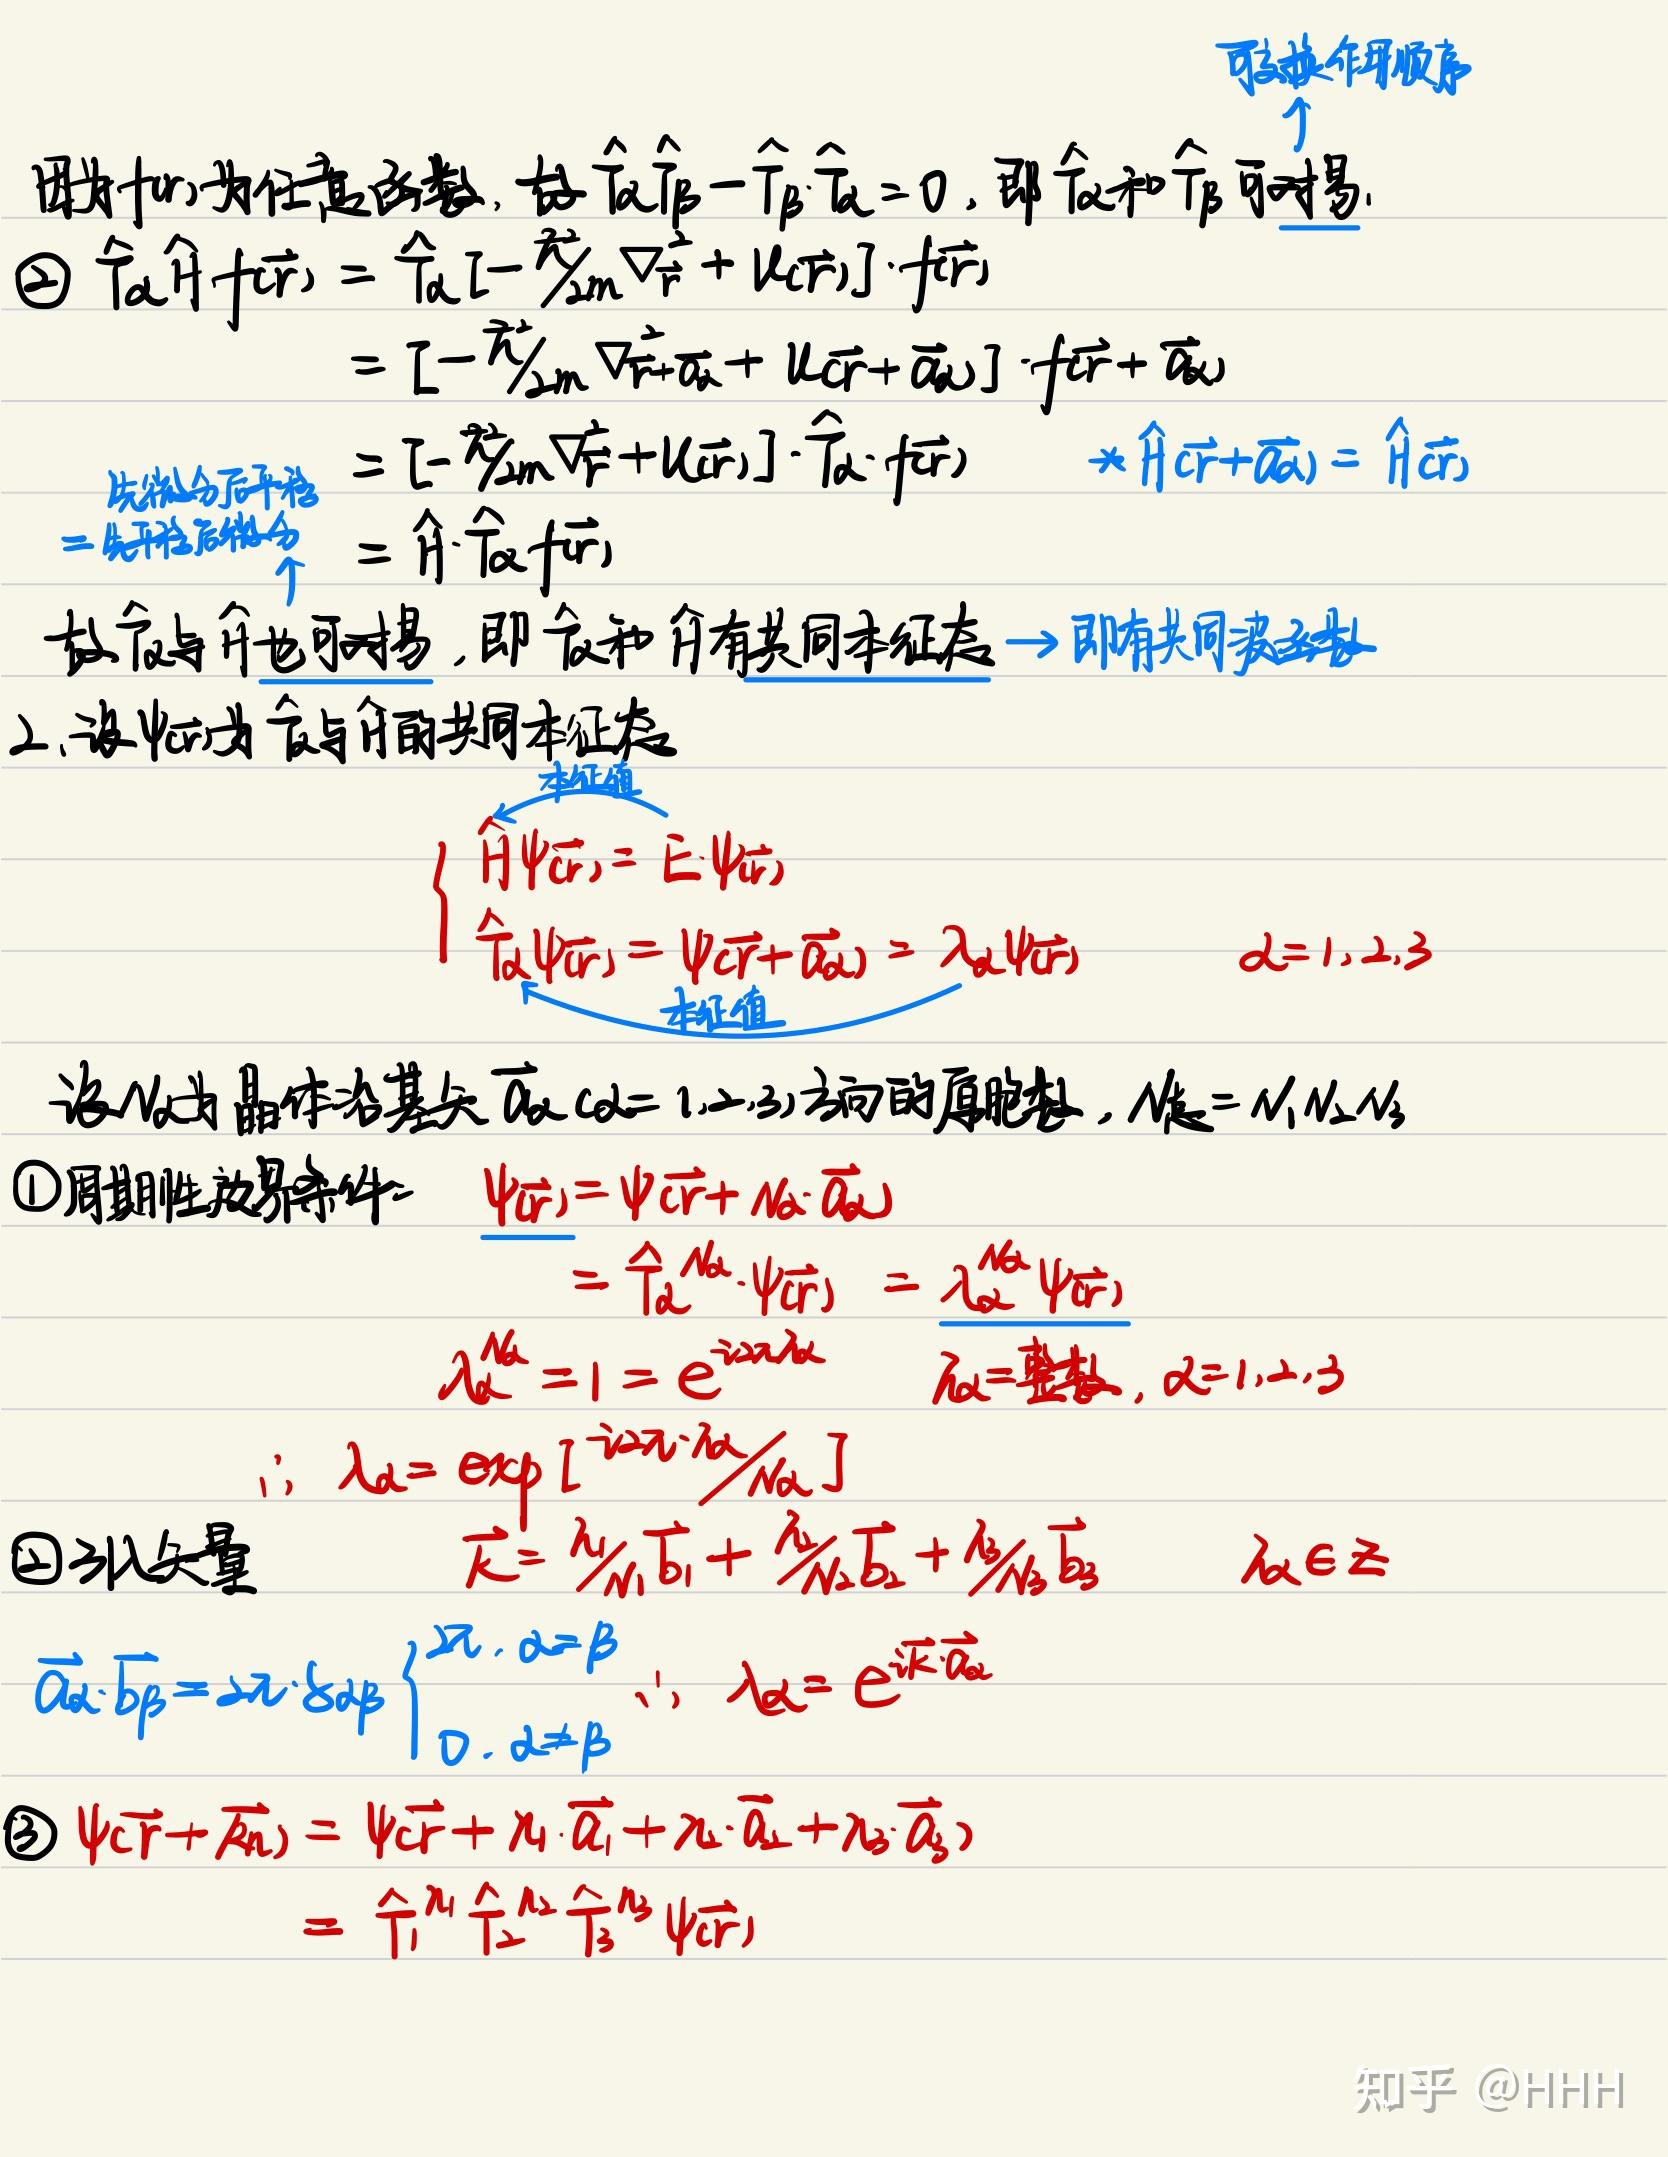 可交换作用顺序
↑
因为f(r)为任意函数, 故 T̂αT̂β − T̂β·T̂α = 0, 即 T̂α和T̂β 可对易.
② T̂αĤ f(r⃗) = T̂α[-ħ²/2m ∇²r⃗ + U(r⃗)]·f(r⃗)
= [-ħ²/2m ∇²r⃗+a⃗α + U(r⃗+a⃗α)]·f(r⃗+a⃗α)
= [-ħ²/2m ∇²r⃗ + U(r⃗)]·T̂α·f(r⃗) * Ĥ(r⃗+a⃗α) = Ĥ(r⃗)
先微分后平移
= 先平移后微分
↑
= Ĥ·T̂α f(r⃗)
故T̂α与Ĥ也可对易, 即 T̂α和 Ĥ有共同本征态 → 即有共同波函数
2. 设ψ(r⃗)为 T̂α与Ĥ的共同本征态
本征值
Ĥψ(r⃗) = E·ψ(r⃗)
T̂αψ(r⃗) = ψ(r⃗+a⃗α) = λαψ(r⃗) α=1,2,3
本征值
设Nα为晶体沿基矢 a⃗α (α=1,2,3)方向的原胞数, N总=N₁N₂N₃
①周期性边界条件: ψ(r⃗) = ψ(r⃗+Nα·a⃗α)
= T̂α^Nα·ψ(r⃗) = λα^Nα ψ(r⃗)
λα^Nα = 1 = e^i2πhα hα=整数, α=1,2,3
∴ λα = exp[i2π·hα/Nα]
②引入矢量 k⃗ = h₁/N₁ b⃗₁ + h₂/N₂ b⃗₂ + h₃/N₃ b⃗₃ hα∈Z
a⃗α·b⃗β = 2π·δαβ { 2π, α=β
0, α≠β
∴ λα = e^ik⃗·a⃗α
③ ψ(r⃗+R⃗n) = ψ(r⃗+n₁·a⃗₁+n₂·a⃗₂+n₃·a⃗₃)
= T̂₁^n₁ T̂₂^n₂ T̂₃^n₃ ψ(r⃗)
知乎 @HHH